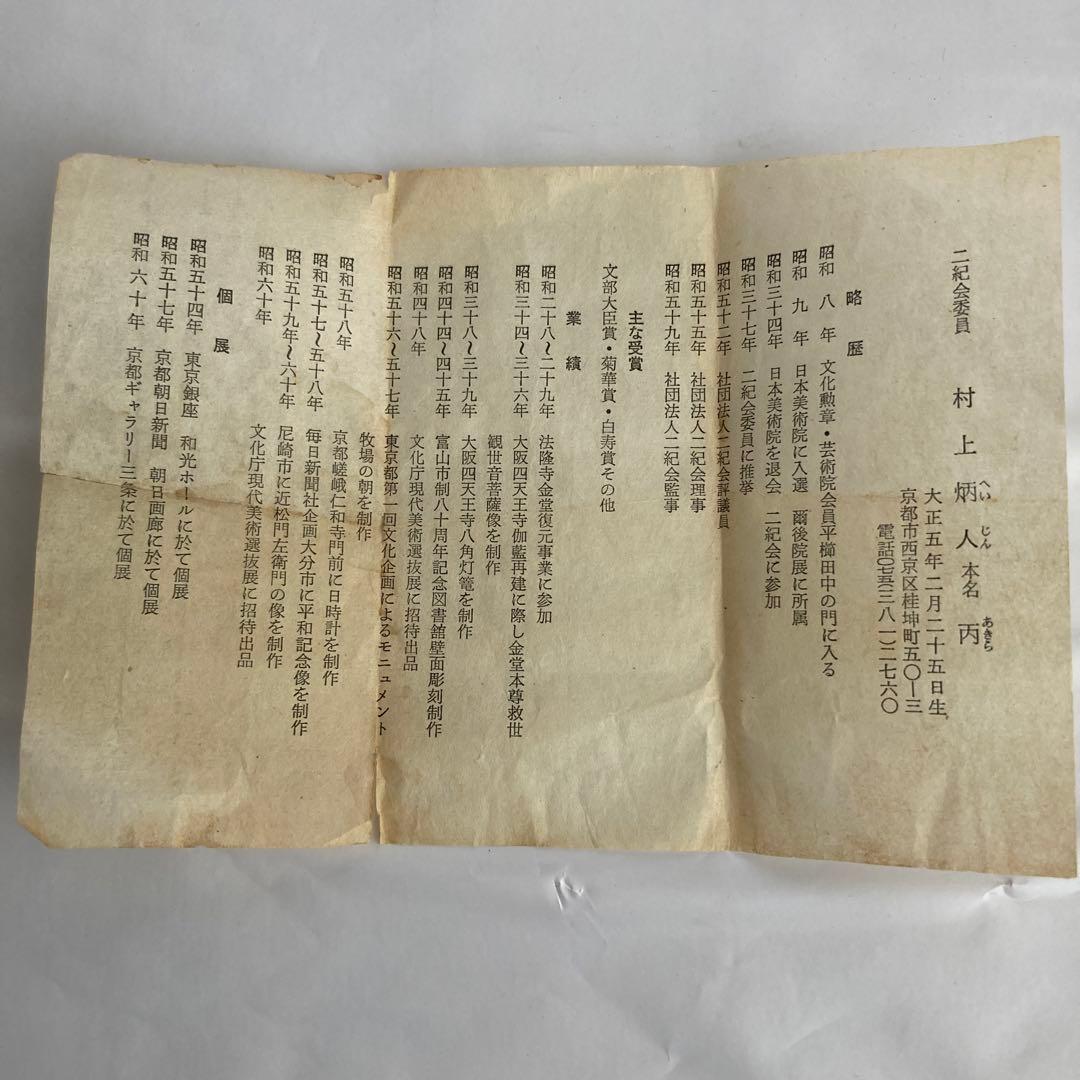 二紀会委員　村上炳人　本名　丙
へい　じん　あきら
大正五年二月二十五日生
京都市西京区桂坤町五〇ー三
電話〇七五(三八一)二七六〇
略歴
昭和　八　年　文化勲章・芸術院会員平櫛田中の門に入る
昭和　九　年　日本美術院に入選　爾後院展に所属
昭和三十四年　日本美術院を退会　二紀会に参加
昭和三十七年　二紀会委員に推挙
昭和五十二年　社団法人二紀会評議員
昭和五十五年　社団法人二紀会理事
昭和五十九年　社団法人二紀会監事
主な受賞
文部大臣賞・菊華賞・白寿賞その他
業績
昭和二十八〜二十九年　法隆寺金堂復元事業に参加
昭和三十四〜三十六年　大阪四天王寺伽藍再建に際し金堂本尊救世
観世音菩薩像を制作
昭和三十八〜三十九年　大阪四天王寺八角灯篭を制作
昭和四十四〜四十五年　富山市制八十周年記念図書舘壁面彫刻制作
昭和四十八年　文化庁現代美術選抜展に招待出品
昭和五十六〜五十七年　東京都第一回文化企画によるモニュメント
牧場の朝を制作
昭和五十八年　京都嵯峨仁和寺門前に日時計を制作
昭和五十七〜五十八年　毎日新聞社企画大分市に平和記念像を制作
昭和五十九年〜六十年　尼崎市に近松門左衛門の像を制作
昭和六十年　文化庁現代美術選抜展に招待出品
個展
昭和五十四年　東京銀座　和光ホールに於て個展
昭和五十七年　京都朝日新聞　朝日画廊に於て個展
昭和　六十年　京都ギャラリー三条に於て個展